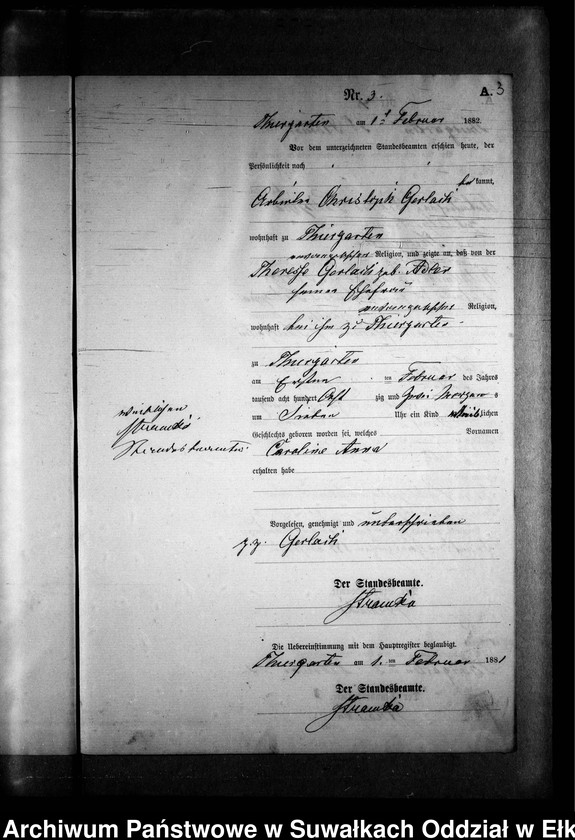 A. 3
Nr. 3.
Thiergarten am 1t Februar 1882.
Vor dem unterzeichneten Standesbeamten erschien heute, der
Persönlichkeit nach
bekannt,
Arbeiter Christoph Gerlach
wohnhaft zu Thiergarten
evangelischer Religion, und zeigte an, daß von der
Therese Gerlach geb. Adler
seiner Ehefrau
evangelischer Religion,
wohnhaft bei ihm zu Thiergarten
zu Thiergarten
am Ersten ten Februar des Jahres
tausend acht hundert Acht zig und Zwei Morgens
um Sieben Uhr ein Kind weiblichen
weiblichen
Geschlechts geboren worden sei, welches Vornamen
Standesbeamter
Caroline Anna
erhalten habe
Vorgelesen, genehmigt und unterschrieben
gez. Gerlach
Der Standesbeamte.
Die Uebereinstimmung mit dem Hauptregister beglaubigt.
Thiergarten am 1. ten Februar 188
Der Standesbeamte.
Archiwum Państwowe w Suwałkach Oddział w Ełk